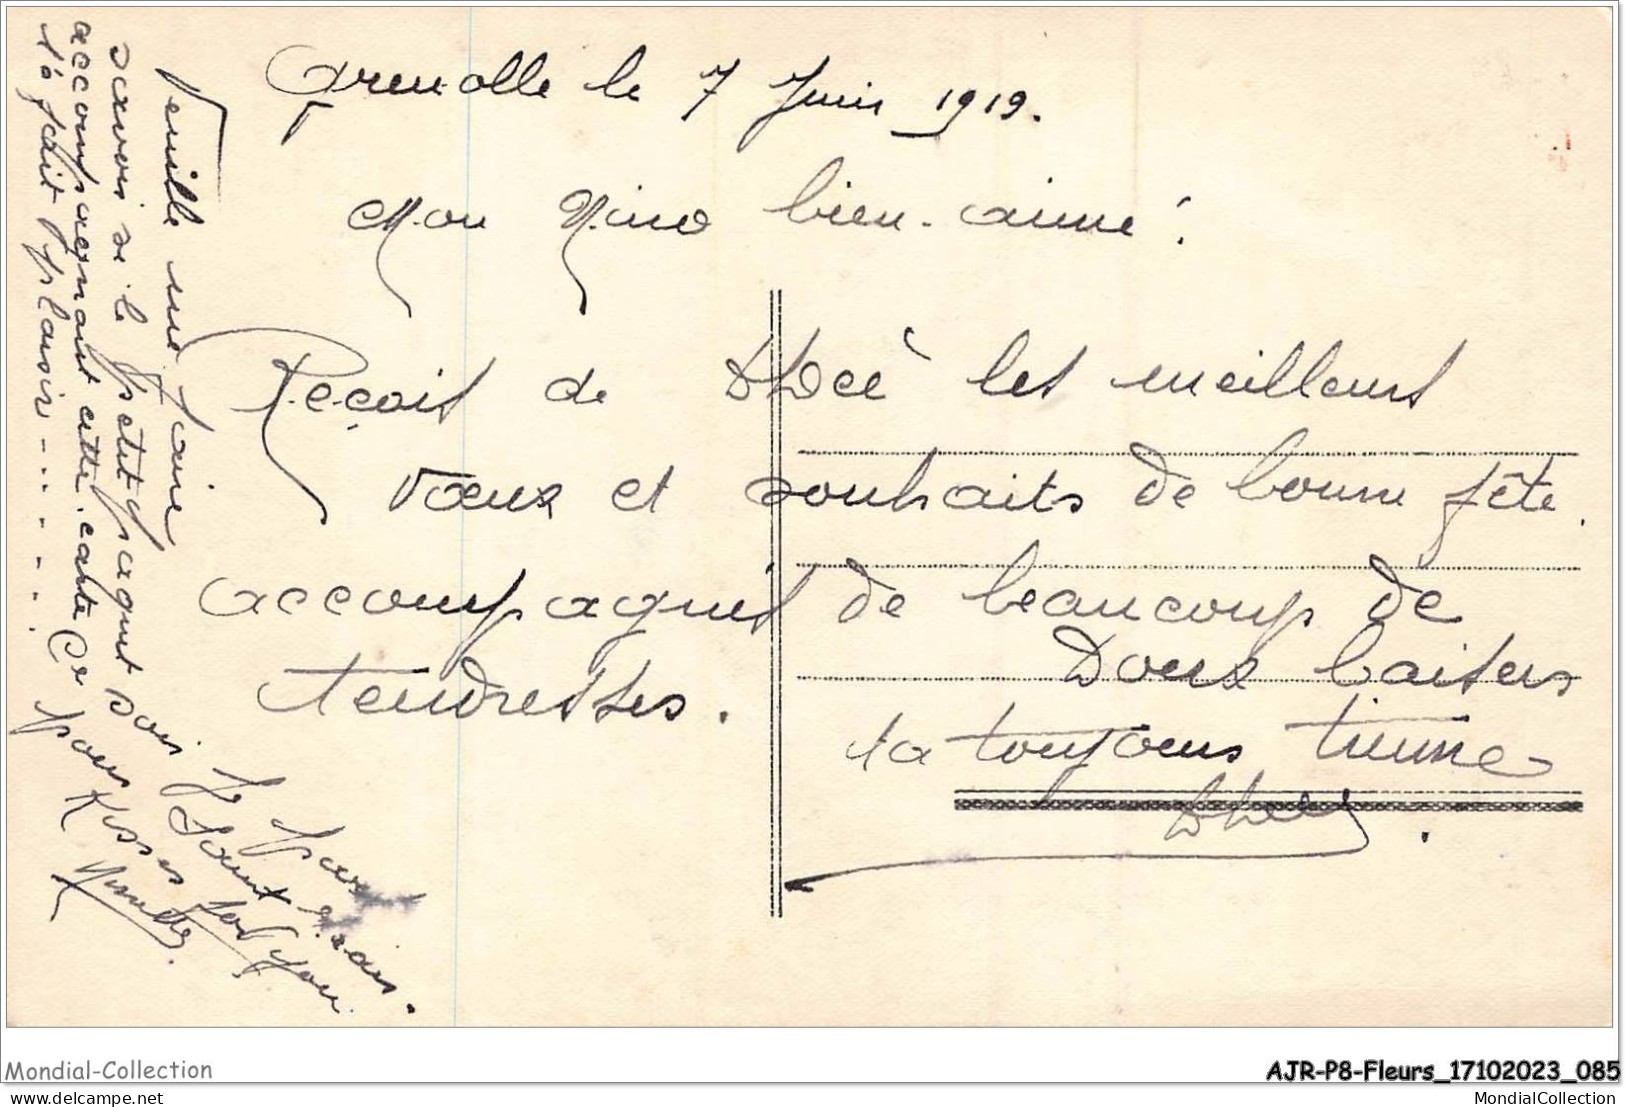 Grenoble le 7 Juin 1919.
Mon Nino bien-aimé!
Reçoit de les meilleurs
vœux et souhaits de bonne fête.
accompagnés de beaucoup de
tendresses. Doux baisers
ta toujours tienne
Veuille me faire
savoir si le petit paquet
accompagnant cette carte
t'a fait plaisir
pour
Kisses for you
Ninette
Mondial-Collection
AJR-P8-Fleurs_17102023_085
www.delcampe.net
MondialCollection